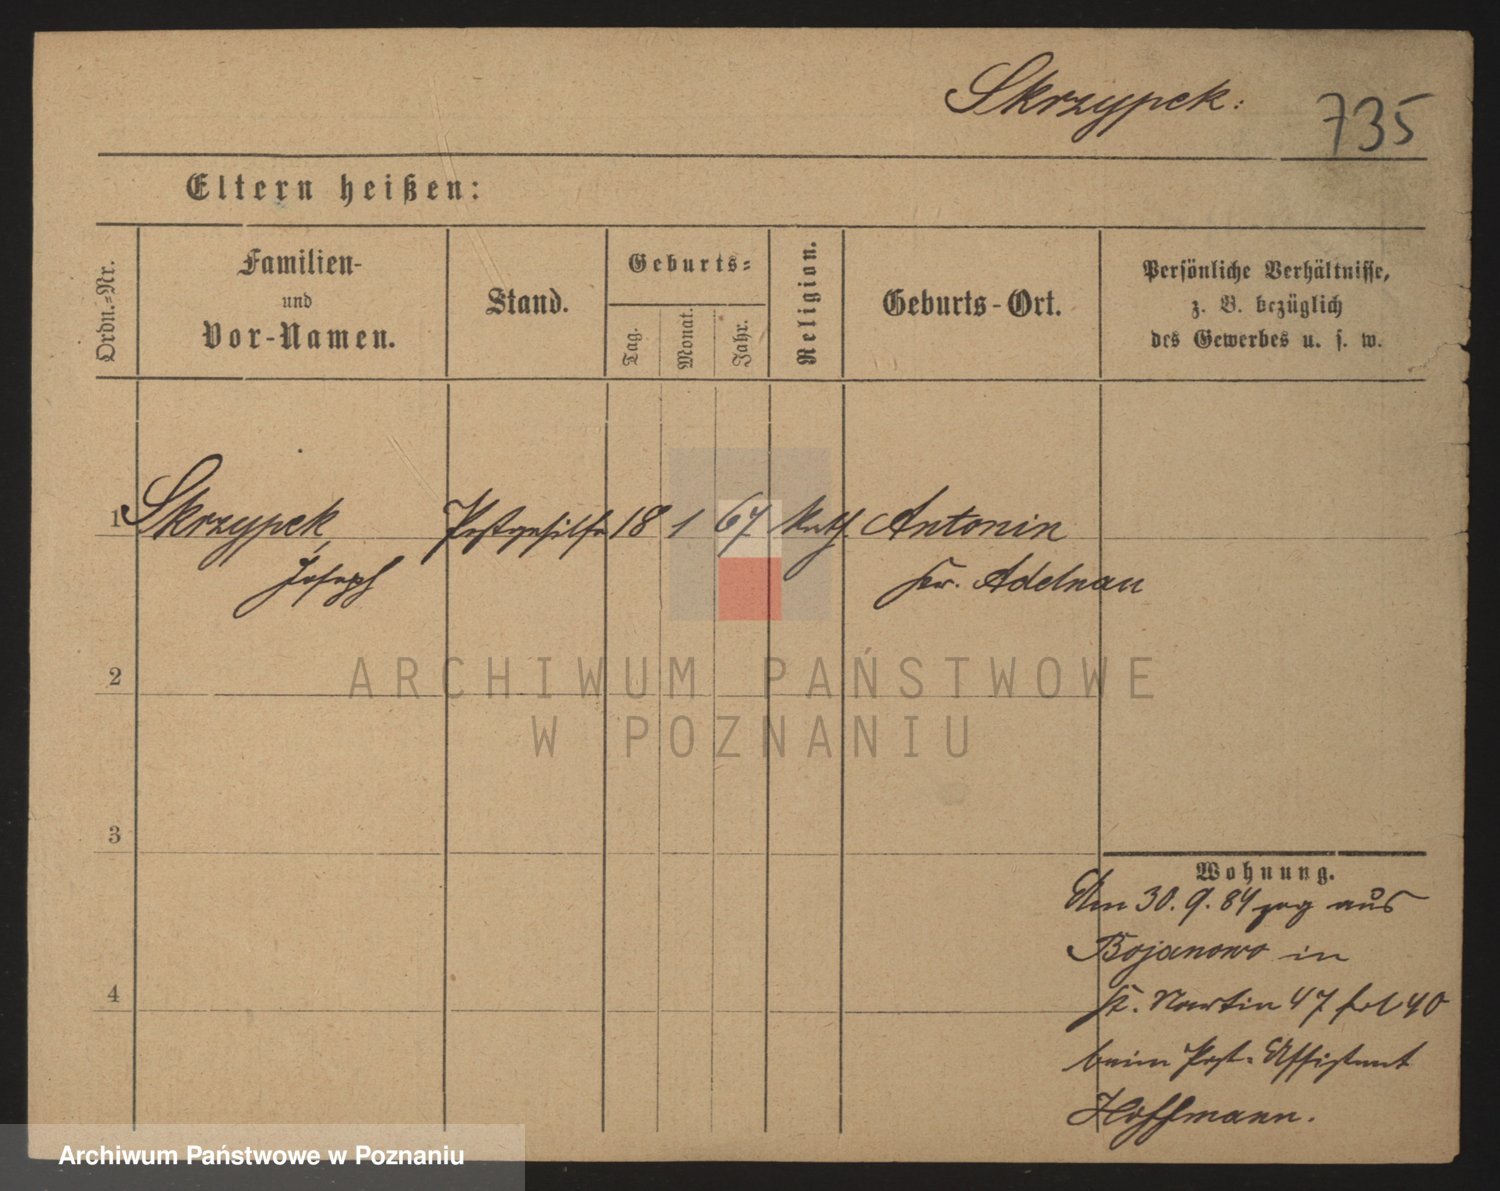 Skrzypek:
735
Eltern heißen:
Ordn.-Nr.
Familien-
und
Vor-Namen.
Stand.
Geburts-
Tag.
Monat.
Jahr.
Religion.
Geburts-Ort.
Persönliche Verhältnisse,
z. B. bezüglich
des Gewerbes u. s. w.
1 Skrzypek, Postgehilfe 18 1 67 Kath. Antonin
Joseph Kr. Adelnau
2
ARCHIWUM PAŃSTWOWE
W POZNANIU
3
Wohnung.
Am 30. 9. 84 zog aus
Bojanowo in
4
St. Martin 47 40
beim Post-Assistent
Hoffmann.
Archiwum Państwowe w Poznaniu